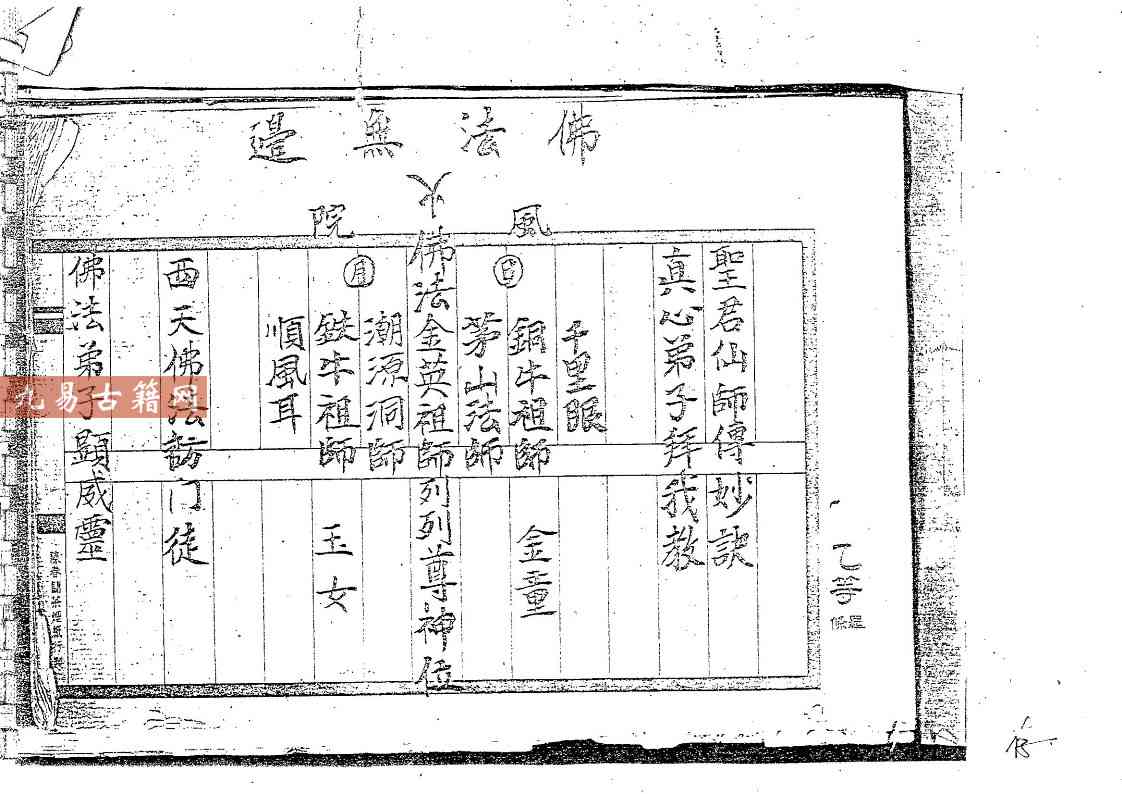 佛法無邊
風院
聖君仙師傳妙訣
真心弟子拜我教
千里眼
日
銅牛祖師
金童
茅山法師
佛法金英祖師列列尊神位
潮源洞師
月
鉄牛祖師
玉女
順風耳
西天佛法訪门徒
佛法弟子顯威靈
乙等
九易古籍网